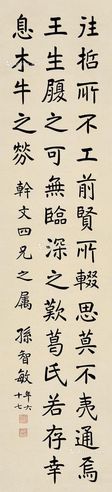 往哲所不工前賢所輟思莫不夷通焉
王生履之可無臨深之歎葛氏若存幸
息木牛之勞 幹丈四兄之屬 孫智敏
年六
十七